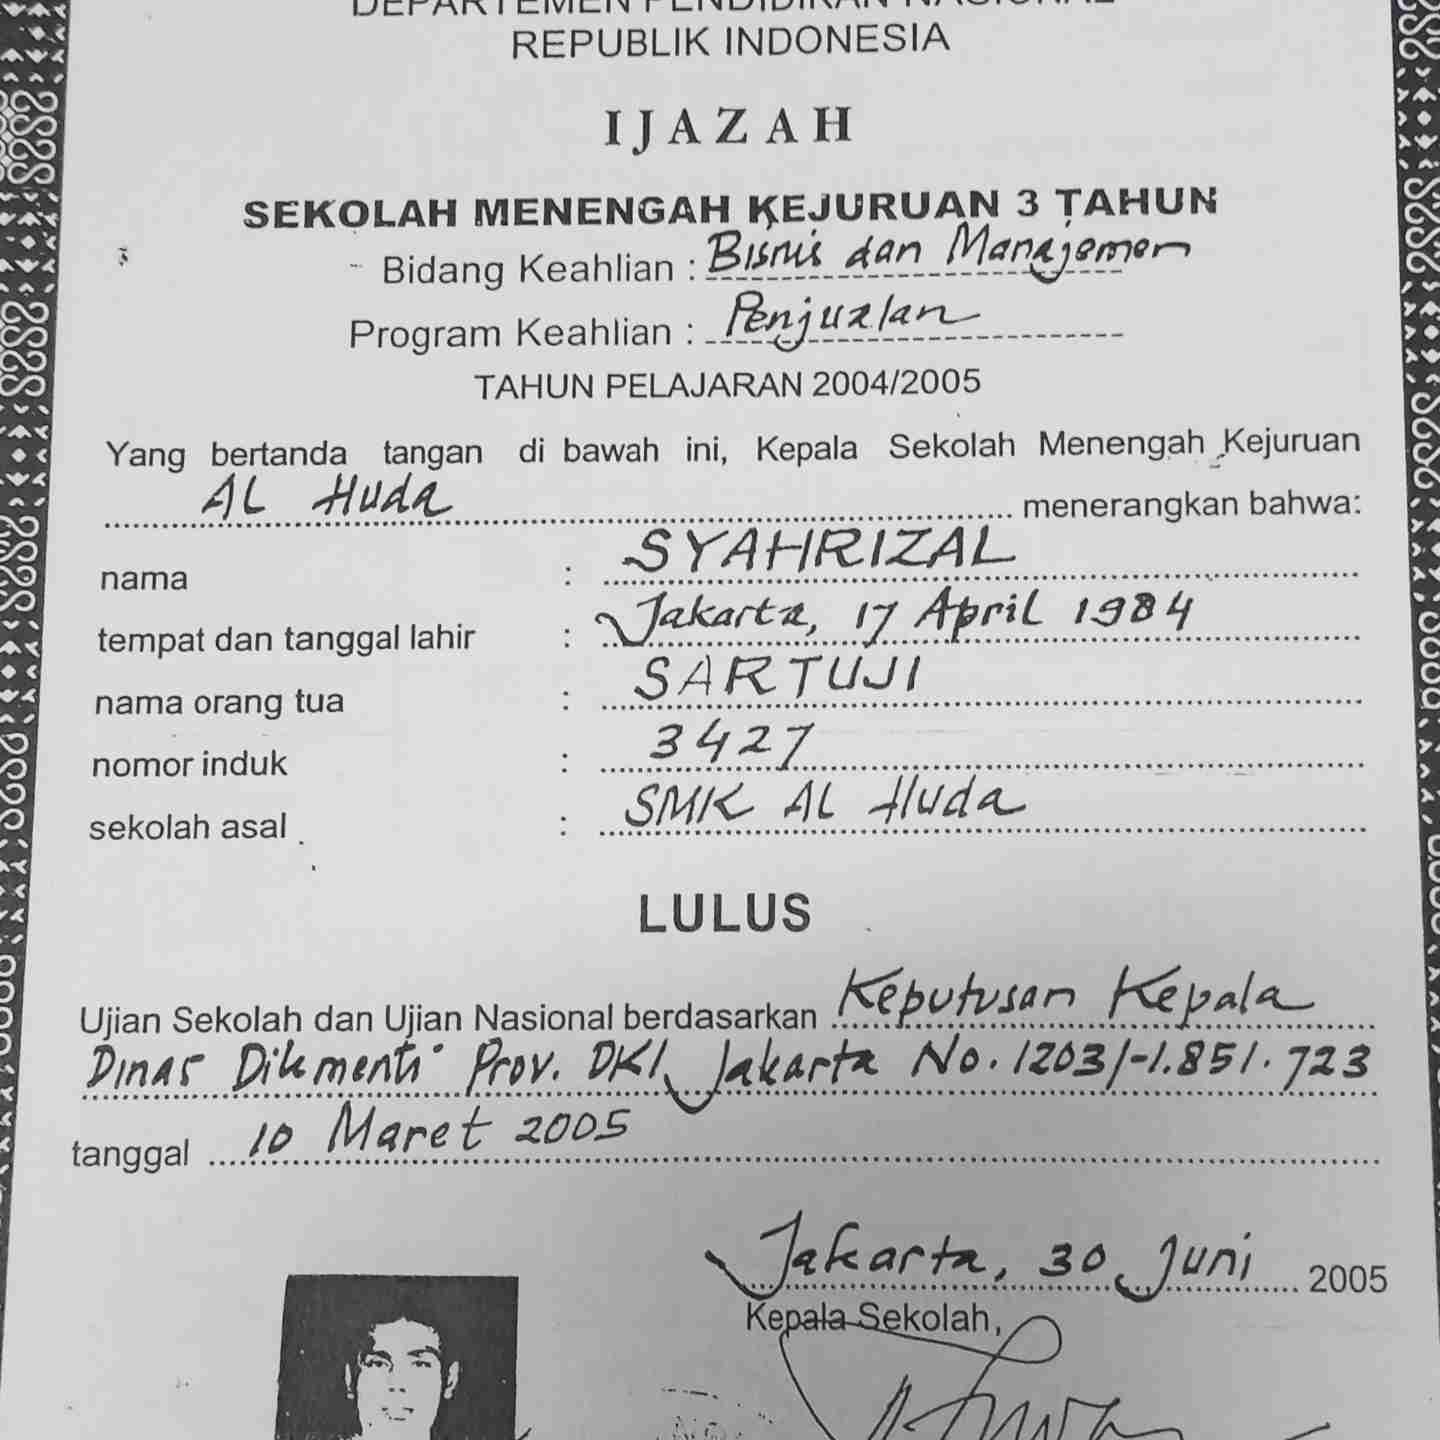 DEPARTEMEN PENDIDIKAN NASIONAL
REPUBLIK INDONESIA
IJAZAH
SEKOLAH MENENGAH KEJURUAN 3 TAHUN
Bidang Keahlian : Bisnis dan Manajemen
Program Keahlian : Penjualan
TAHUN PELAJARAN 2004/2005
Yang bertanda tangan di bawah ini, Kepala Sekolah Menengah Kejuruan
AL Huda menerangkan bahwa:
nama : SYAHRIZAL
tempat dan tanggal lahir : Jakarta, 17 April 1984
nama orang tua : SARTUJI
nomor induk : 3427
sekolah asal : SMK AL Huda
LULUS
Ujian Sekolah dan Ujian Nasional berdasarkan Keputusan Kepala
Dinas Dikmenti Prov. DKI Jakarta No. 1203/-1.851.723
tanggal 10 Maret 2005
Jakarta, 30 Juni 2005
Kepala Sekolah,